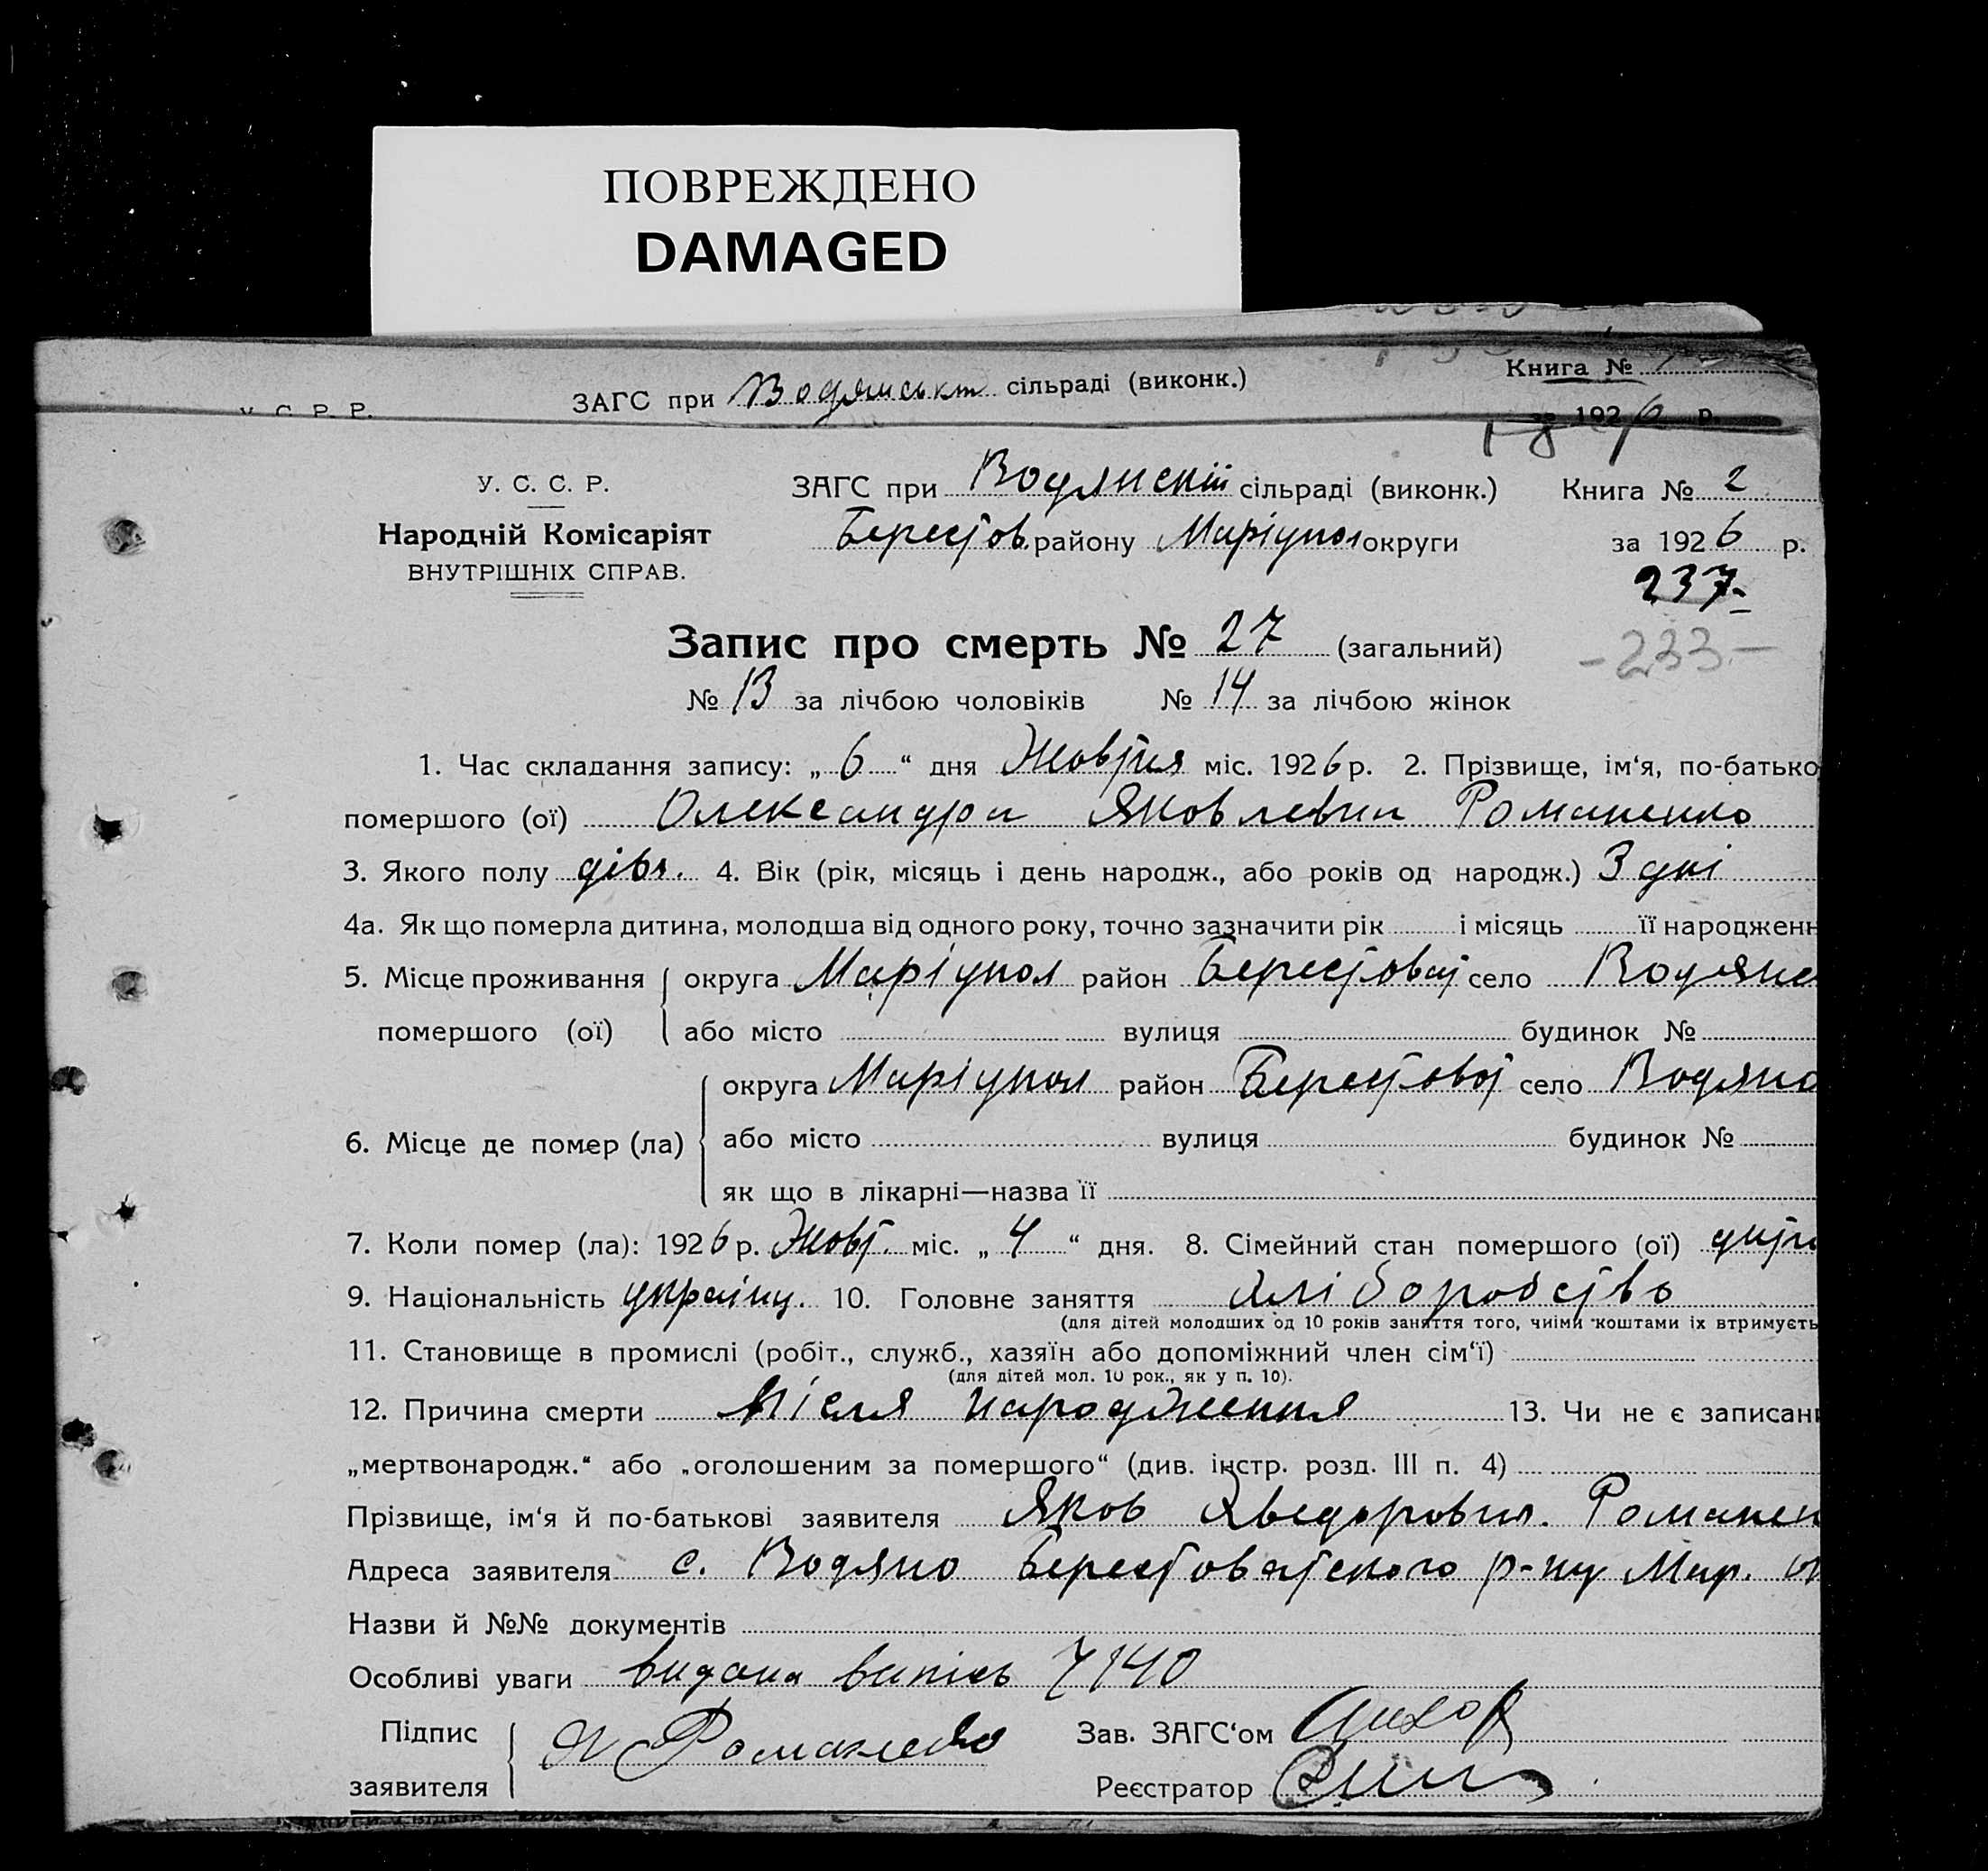 ПОВРЕЖДЕНО
DAMAGED
ЗАГС при сільраді (виконк.) Книга №
У. С. Р. Р. 1926 р.
У. С. С. Р. ЗАГС при Водянскій сільраді (виконк.) Книга № 2
Народній Комісаріят Берестов. району Маріупол округи за 1926 р.
ВНУТРІШНІХ СПРАВ. 237-
Запис про смерть № 27 (загальний) -233-
№ 13 за лічбою чоловіків № 14 за лічбою жінок
1. Час складання запису: „ 6 “ дня Жовтня міс. 1926 р. 2. Прізвище, ім‘я, по-батько
помершого (ої) Олександра Яковлевна Романенко
3. Якого полу дівч. 4. Вік (рік, місяць і день народж., або років од народж.) 3 дні
4а. Як що померла дитина, молодша від одного року, точно зазначити рік і місяць її народженн
5. Місце проживання округа Маріупол район Берестоват село Водяно
помершого (ої) або місто вулиця будинок №
округа Маріупол район Берестовой село Водяно
6. Місце де помер (ла) або місто вулиця будинок №
як що в лікарні—назва її
7. Коли помер (ла): 1926 р. Жовт. міс. „ 4 “ дня. 8. Сімейний стан помершого (ої) дитя
9. Національність україн. 10. Головне заняття хліборобств
(для дітей молодших од 10 років заняття того, чиїми коштами їх втримуєть
11. Становище в промислі (робіт., служб., хазяїн або допоміжний член сім‘ї)
(для дітей мол. 10 рок., як у п. 10).
12. Причина смерти Після народження 13. Чи не є записан
„мертвонародж.“ або „оголошеним за помершого“ (див. інстр. розд. III п. 4)
Прізвище, ім‘я й по-батькові заявителя Яков Хведорович. Романен
Адреса заявителя с. Водяно Берестоватского р-ну Мар. ок
Назви й №№ документів
Особливі уваги видана випись 7140
Підпис Я Романенко Зав. ЗАГС‘ом
заявителя Реєстратор